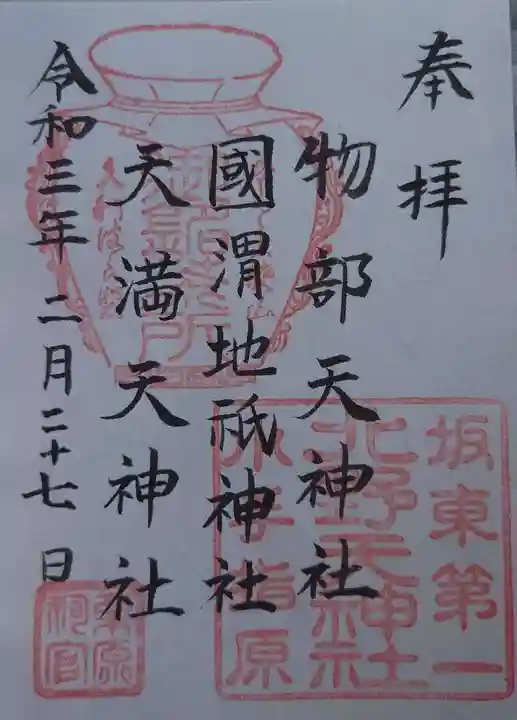 奉拝
物部天神社
國渭地祇神社
天満天神社
令和三年 二月二十七日
坂東第一
北野天神社
小手指原